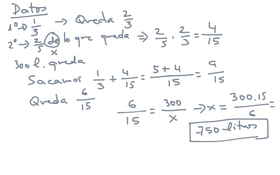 Datos
1º → 1/3 → Queda 2/3
2º → 2/5 de lo que queda ⇒ 2/5 · 2/3 = 4/15
x
300 l. queda
Sacamos 1/3 + 4/15 = 5+4/15 = 9/15
Queda 6/15 6/15 = 300/x → x = 300.15/6 =
750 litros